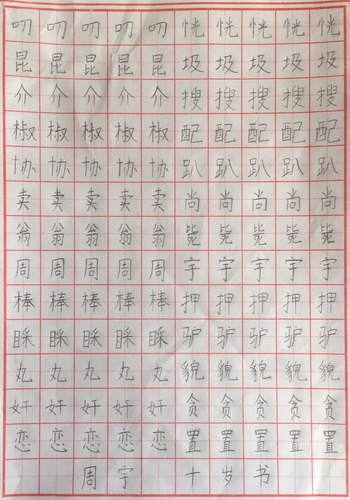 叨叨叨叨叨恍恍恍恍恍
昆昆昆昆昆圾圾圾圾圾
介介介介介搜搜搜搜搜
椒椒椒椒椒配配配配配
协协协协协趴趴趴趴趴
卖卖卖卖卖尚尚尚尚尚
翁翁翁翁翁毙毙毙毙毙
周周周周周宇宇宇宇宇
棒棒棒棒棒押押押押押
睬睬睬睬睬驴驴驴驴驴
丸丸丸丸丸貌貌貌貌貌
奸奸奸奸奸贪贪贪贪贪
恋恋恋恋恋置置置置置
周宇十岁书